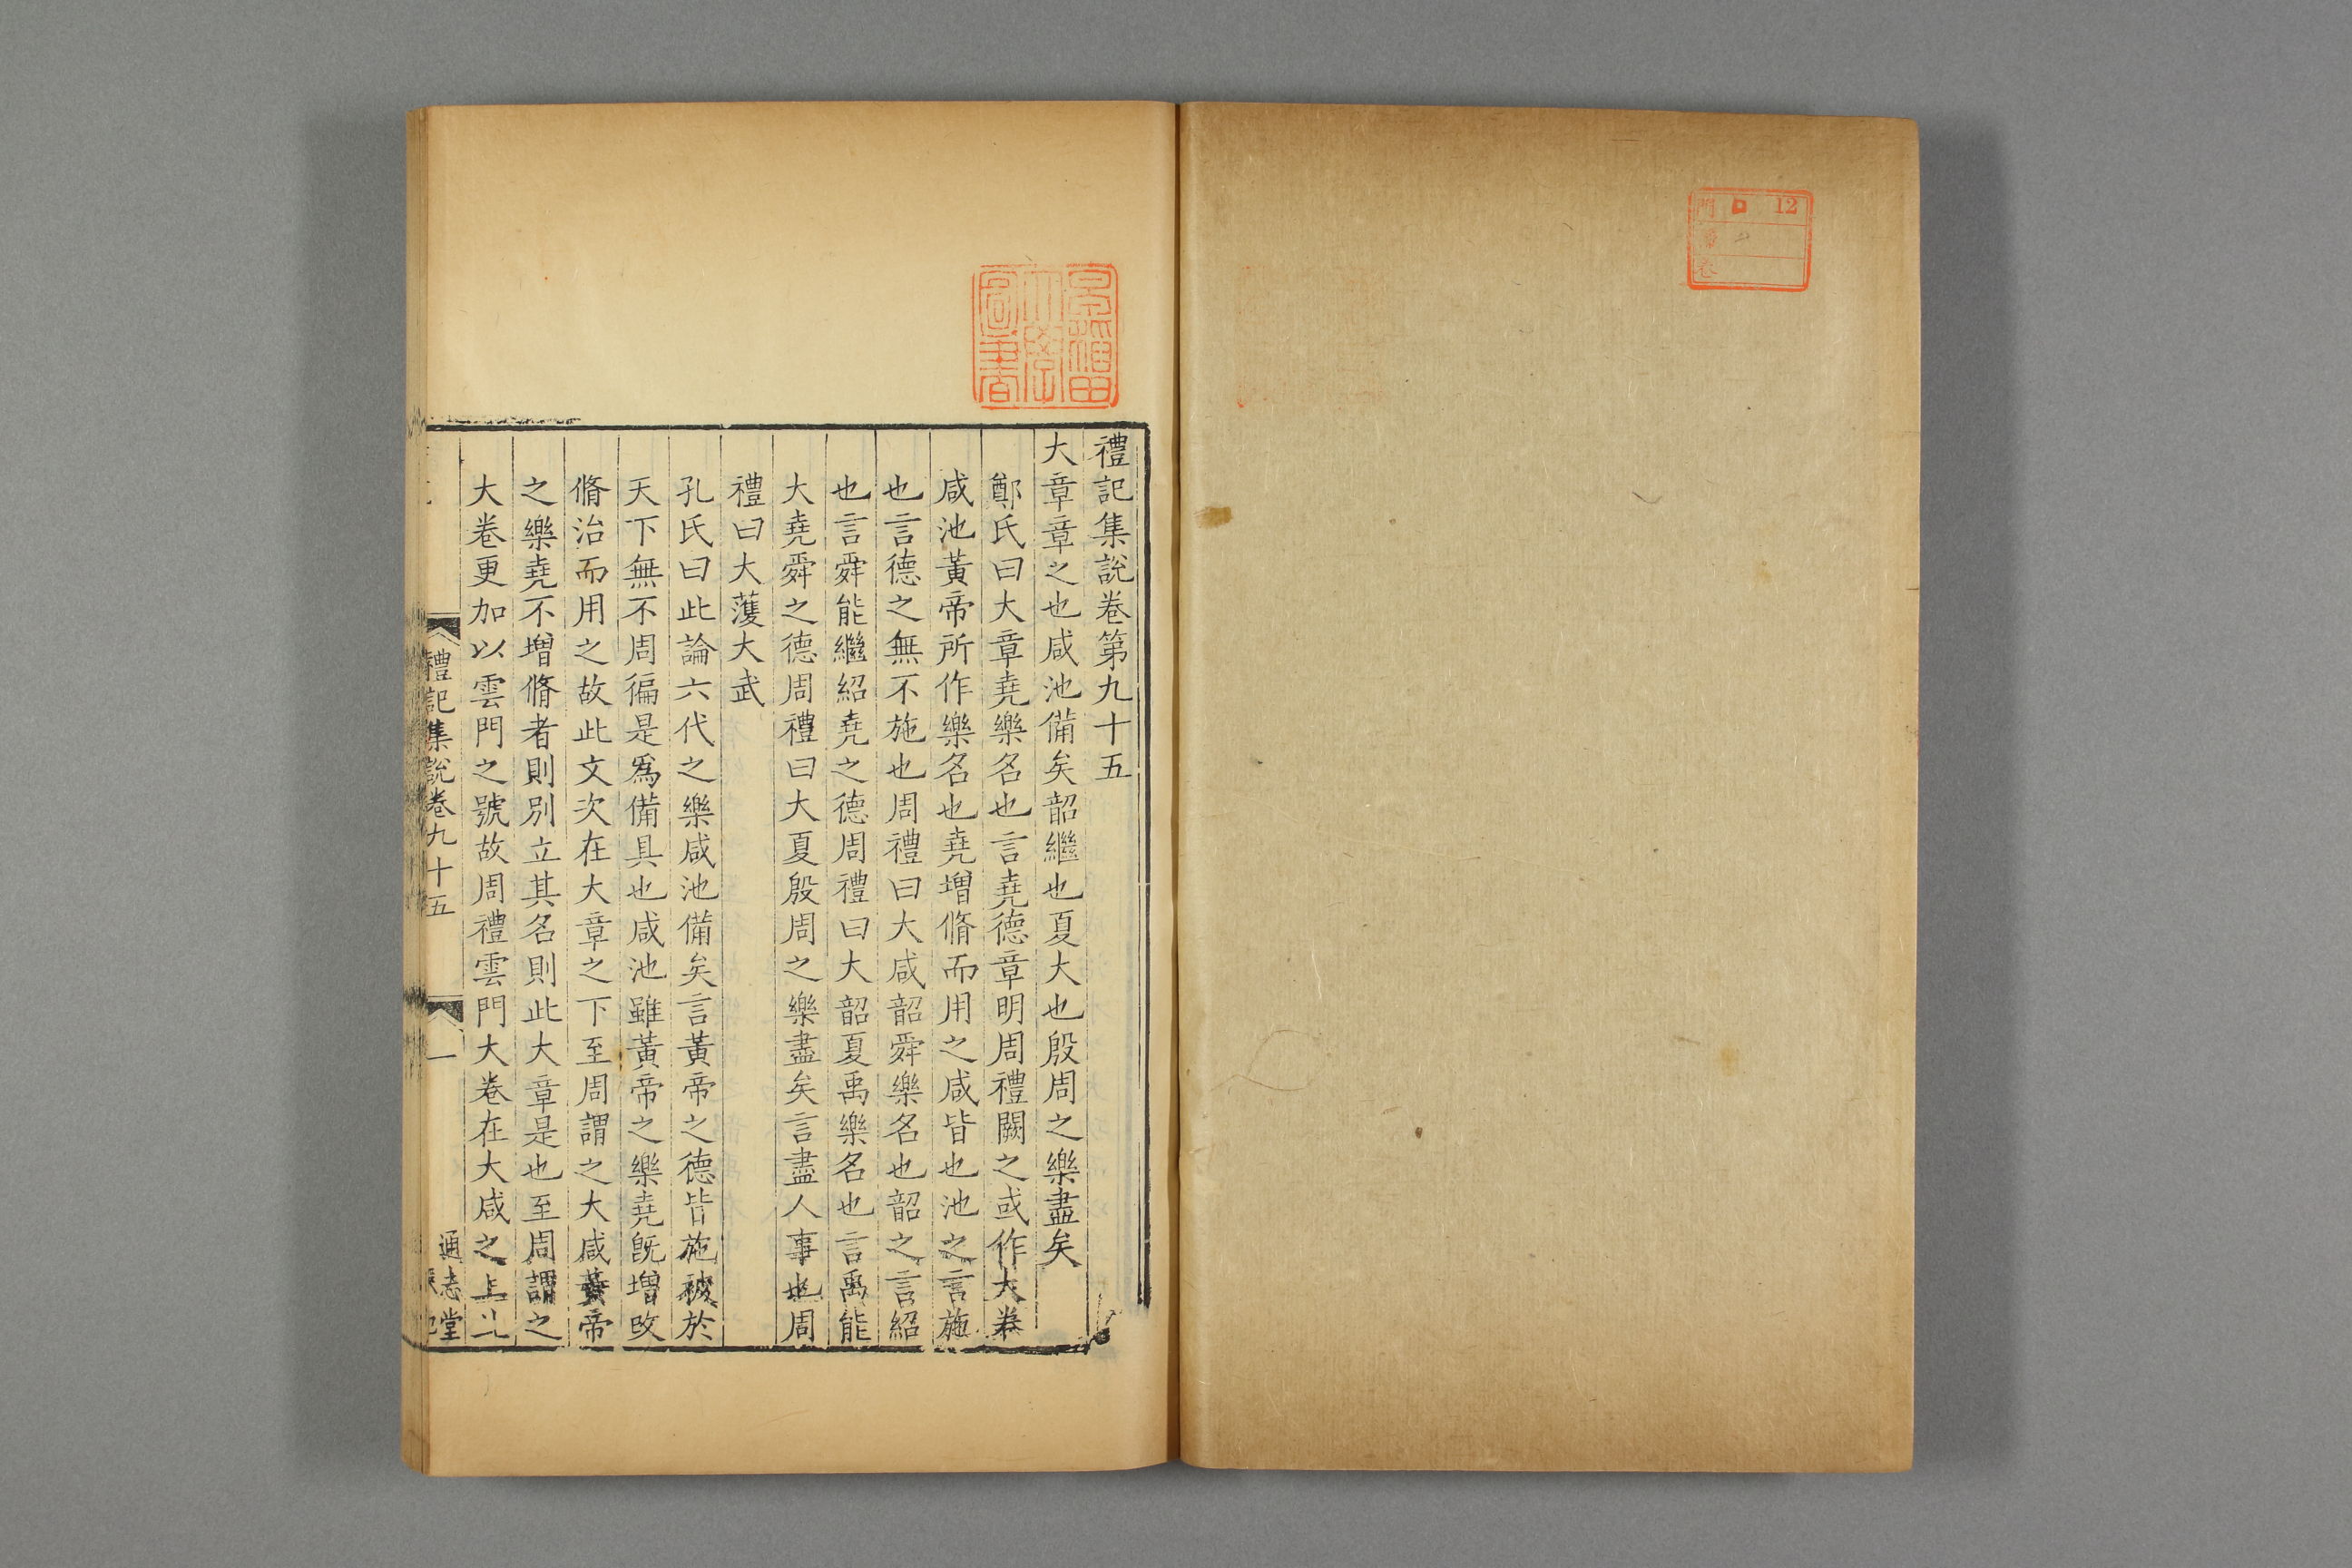 門 ロ 12
番
卷
早稲田
大學
圖書
禮記集說卷第九十五
大章章之也咸池備矣韶繼也夏大也殷周之樂盡矣
鄭氏曰大章堯樂名也言堯德章明周禮闕之或作大卷
咸池黃帝所作樂名也堯增脩而用之咸皆也池之言施
也言德之無不施也周禮曰大咸韶舜樂名也韶之言紹
也言舜能繼紹堯之德周禮曰大韶夏禹樂名也言禹能
大堯舜之德周禮曰大夏殷周之樂盡矣言盡人事也周
禮曰大蒦大武
孔氏曰此論六代之樂咸池備矣言黃帝之德皆施被於
天下無不周徧是爲備具也咸池雖黃帝之樂堯旣增改
脩治而用之故此文次在大章之下至周謂之大咸黃帝
之樂堯不增脩者則別立其名則此大章是也至周謂之
大卷更加以雲門之號故周禮雲門大卷在大咸之上
禮記集說卷九十五 一 通志堂